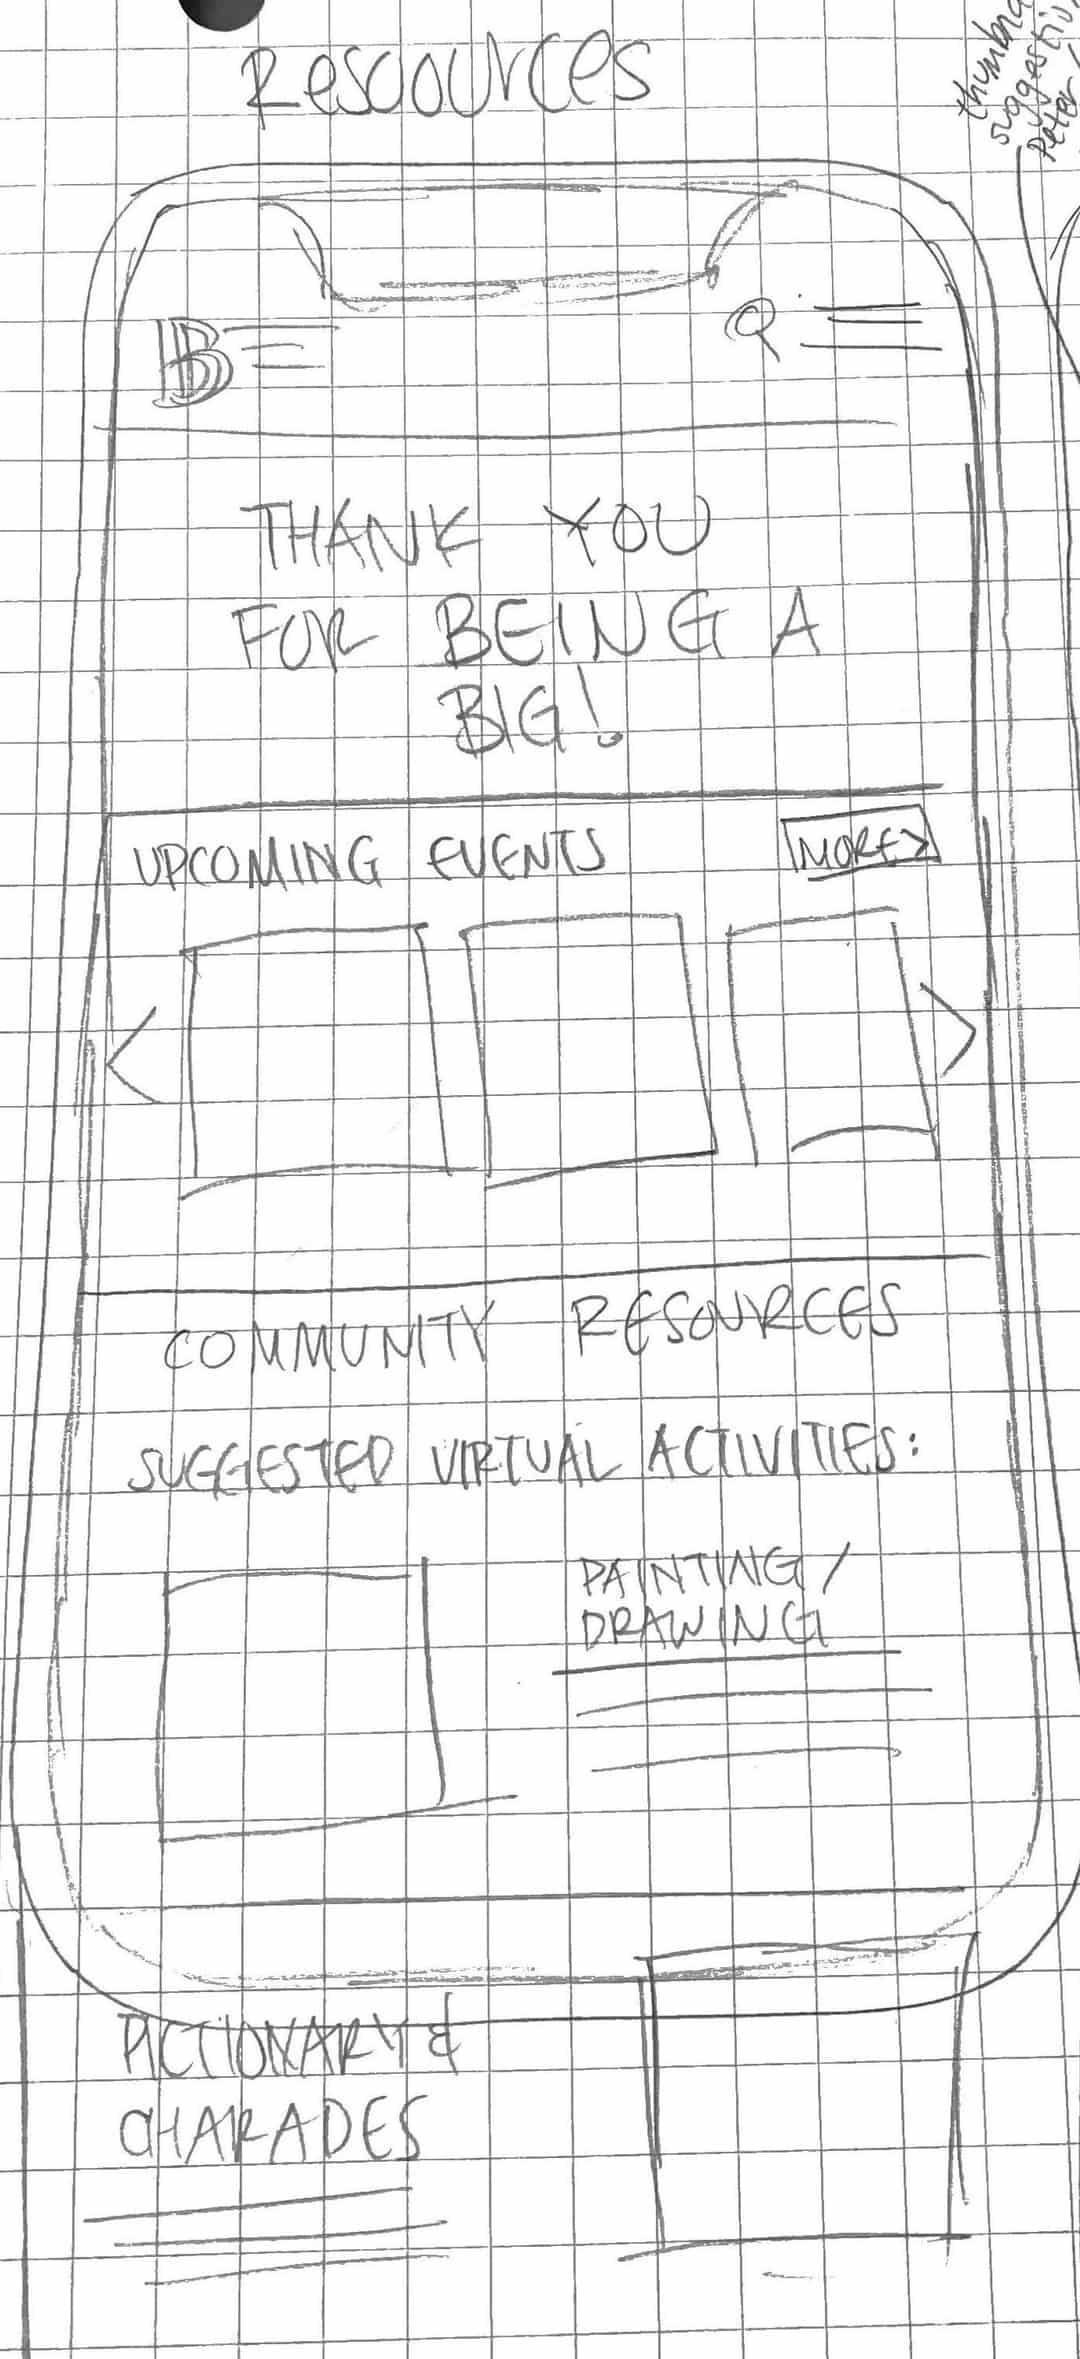 Resources
thumbna
suggestio
Peter
B
THANK YOU
FOR BEING A
BIG!
UPCOMING EVENTS
MORE >
COMMUNITY RESOURCES
SUGGESTED VIRTUAL ACTIVITIES:
PAINTING/
DRAWING
PICTIONARY &
CHARADES